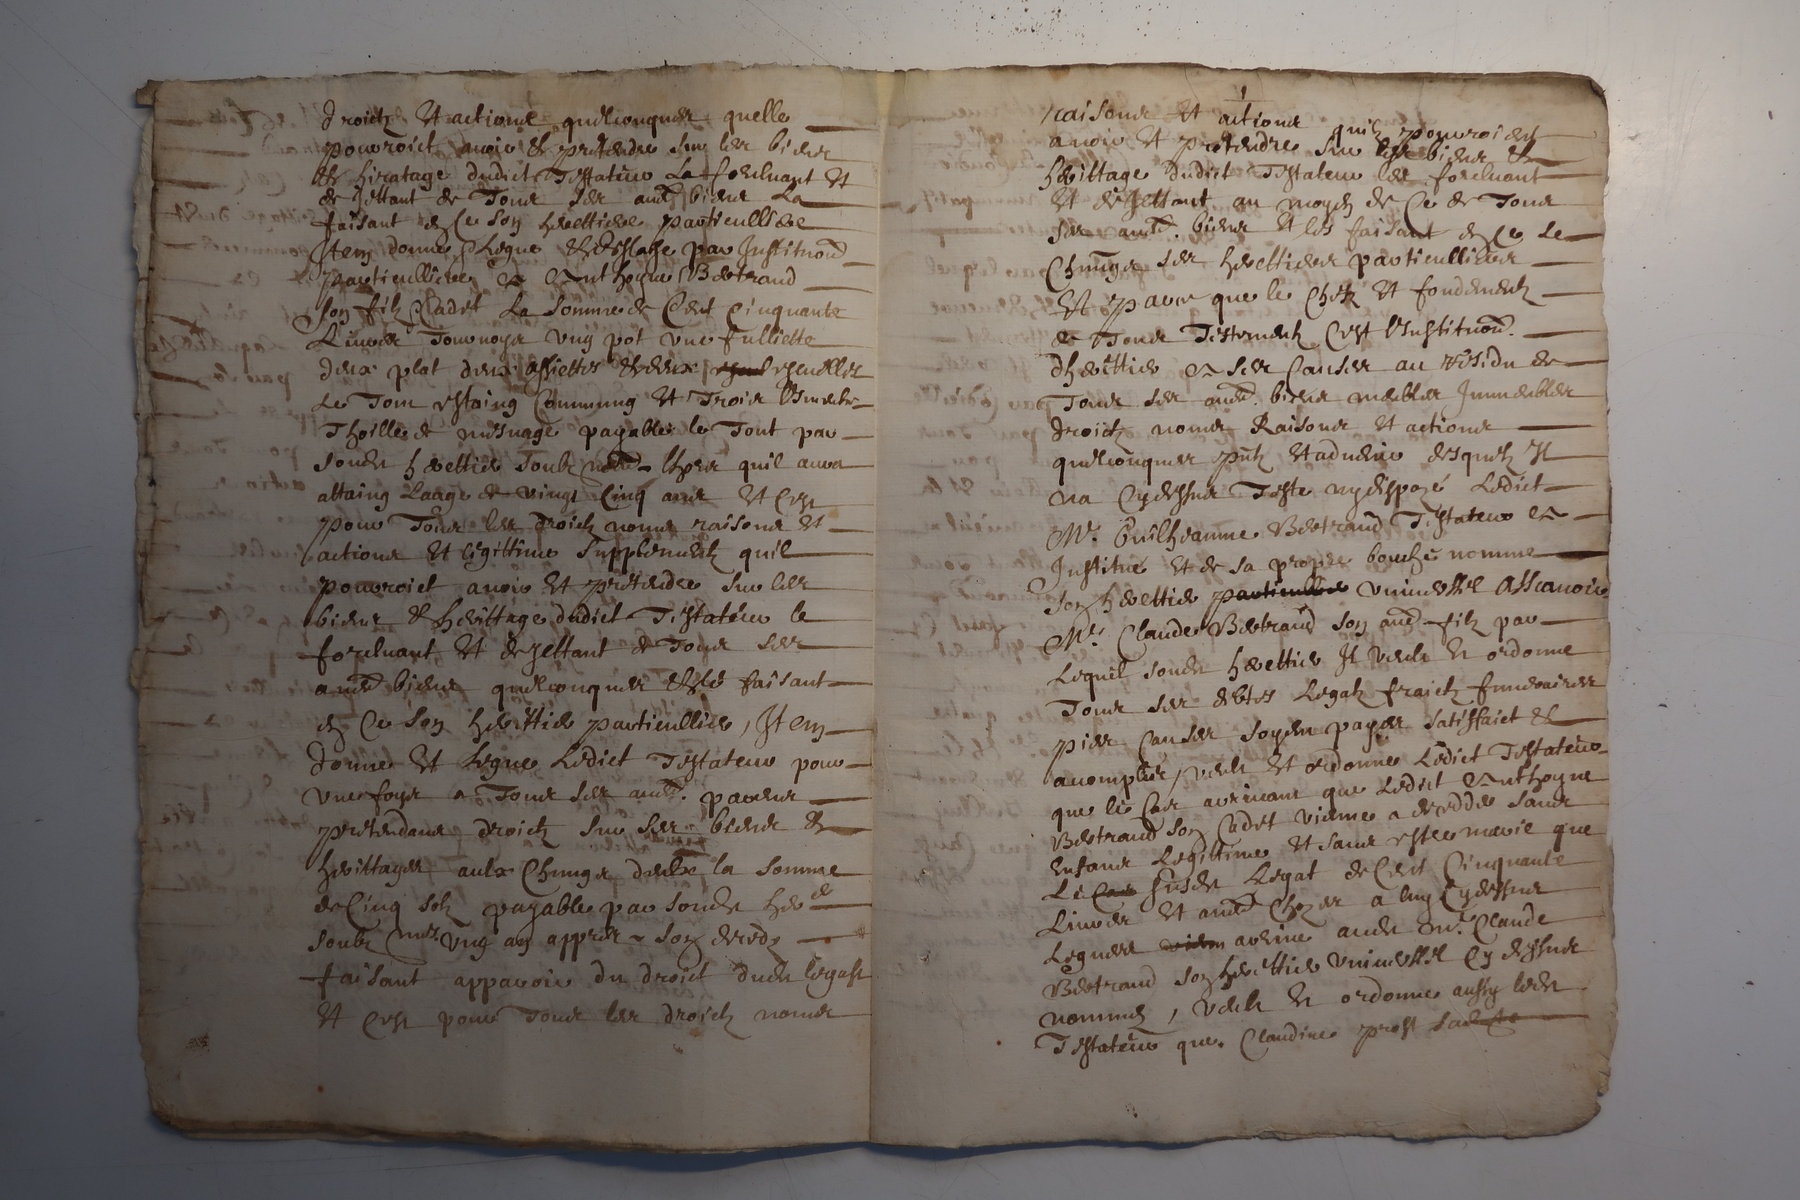 droictz et actions quelconques quelle
pouvroict avoir et pretendre sur les biens
et hiratage dudict Testateur La forcluant et
de Jettant de Tous ses autres biens La
faisant en ce son herettiere particulliere
Item donne Legue et par Institution
particulliere a Anthoyne Bertrand
son filz Cadet La somme de Cent Cinquante
Livres Tournoys ung pot une fulliette
deux plat deux assiettes et deux escuelles
Le Tout estaing Commung et Trois
de mesnage payable le Tout par
sondit herettier soubz nommé lhors quil aura
attaing Laage de vingt Cinq ans et cest
pour Tous les droictz noms raisons et
actions et legittime supplementz quil
pouvroict avoir et pretendre sur les
biens et herittage dudict Testateur le
forcluant et dejettant de Tous ses
autres biens quelconques et le faisant
en Ce son herittier particullier, Item
donne et Legue Ledict Testateur pour
une foys a Tous ses autres parens
pretendans droictz sur ses biens et
herittages aulx Charges dheulx la somme
de Cinq solz payable par sondit her
soubz nommé ung an appres son deredz
faisant apparoir du droict dudit legast
et cest pour Tous les droictz noms
1
raisons et actions quilz pouvroient
avoir et pretendre sur les biens et
herittage dudict Testateur les forcluant
et dejettant au moyen de Ce de Tous
ses autres biens et les faisant en ce Le
Charge ses herettiers particulliers
et parce que le Chefz et fondementz
de Tous Testementz cest linstitution
dherettier a ses Causes au residu de
Tous ses autres biens meubles Immeubles
droictz noms Raisons et actions
quelconques pntz et advenir desquelz Il
na Cydessus Teste ny dispozé Ledict
Mr. Guilheaume Bertrand Testateur a
Institué et de sa propre bouche nomme
son herettier particullier universsel assavoir
Mr. Claude Bertrand son aultre filz par
Lequel sondit herettier Il veult et ordonne
Tous ses debtes Legatz fraictz funeraires
pies Causes soyent payes satisfaict et
accomplies, veult et ordonne Ledict Testateur
que le Cas advenant que Ledict Anthoyne
Bertrand son Cadet vienne a dexedder sans
enfans Legittime et sans estre marie que
Le Cas susdit Legat de Cent Cinquante
Livres et autres Chozes a luy Cydessus
Leguees advient audit Mr. Claude
Bertrand son herettier universsel Cy dessus
nommez, veult et ordonne aussy ledit
Testateur que Claudine prost